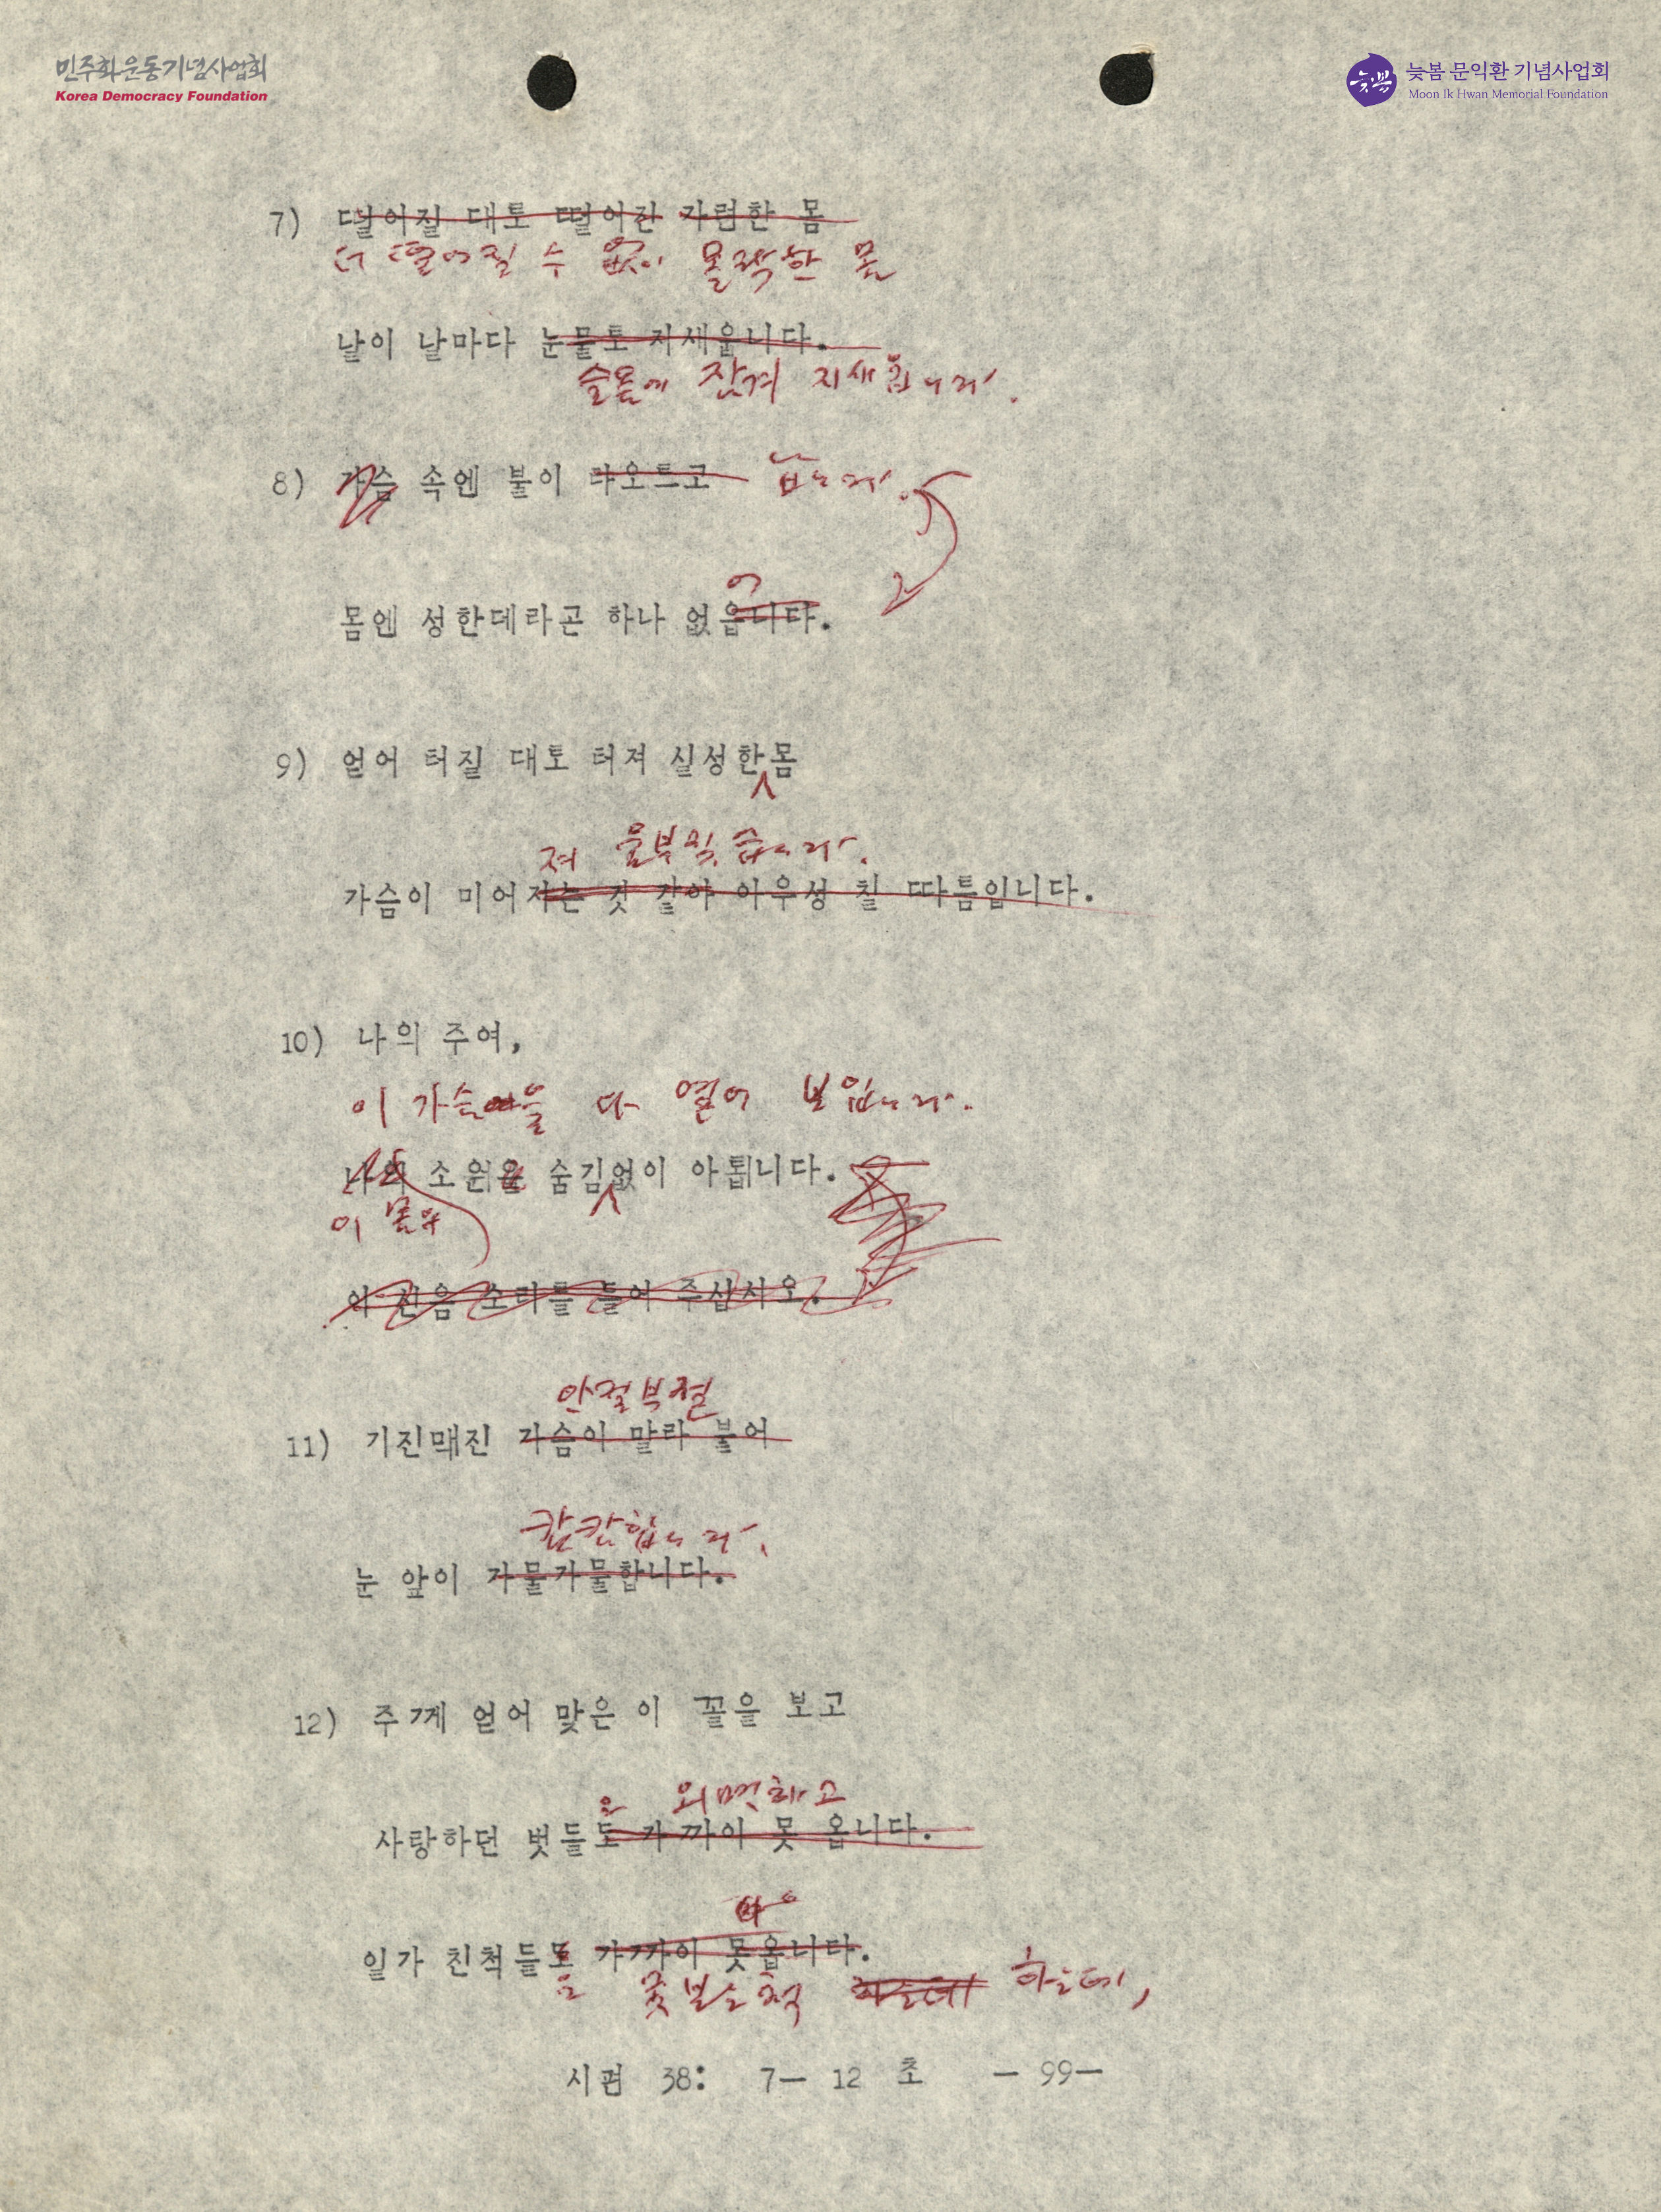 민주화운동기념사업회
Korea Democracy Foundation
늦봄 문익환 기념사업회
Moon Ik Hwan Memorial Foundation
늦봄
7) 떨어질 대로 떨어진 가련한 몸
더 떨어질 수 없이 몰락한 몸
날이 날마다 눈물로 지새웁니다.
슬픔에 잠겨 지새웁니다.
8) 가슴 속엔 불이 타오르고
몸엔 성한데라곤 하나 없읍니다.
어
9) 얻어 터질 대로 터져 실성한몸
져 울부짖습니다.
가슴이 미어지는 것 같아 아우성 칠 따름입니다.
10) 나의 주여,
이 가슴을 다 열어 보입니다.
나의 소원을 숨김없이 아룁니다.
이 몸의
이 신음 소리를 들어 주십시오.
안절부절
11) 기진맥진 가슴이 말라 붙어
캄캄합니다.
눈 앞이 가물가물합니다.
12) 주께 얻어 맞은 이 꼴을 보고
은 외면하고
사랑하던 벗들도 가까이 못 옵니다.
일가 친척들도 가까이 못옵니다.
은 못본척 하는데 하는데,
시편 38: 7— 12 초 — 99—